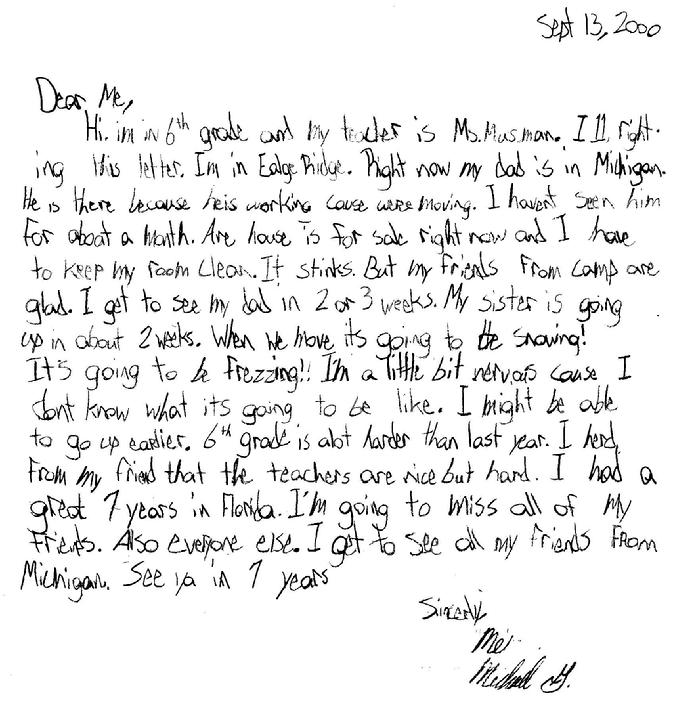 Sept 13, 2000
Dear Me,
Hi. im in 6th grade and my teacher is Ms. Musman. I'll right-
ing this letter. Im in Eadge Ridge. Right now my dad is in Michigan.
He is there because heis working cause were moving. I havent seen him
for about a Month. Are house is for sale right now and I have
to keep my room clean. It stinks. But my friends from camp are
glad. I get to see my dad in 2 or 3 weeks. My sister is going
up in about 2 weeks. When we move its going to be snowing!
It's going to be frezzing!! I'm a little bit nervous cause I
dont know what its going to be like. I might be able
to go up earlier. 6th grade is alot harder than last year. I herd
from my friend that the teachers are nice but hard. I had a
great 7 years in Florida. I'm going to miss all of my
Friends. Also everyone else. I get to see all my friends From
Michigan. See ya in 7 years
Sincerly
Me
Michael G.